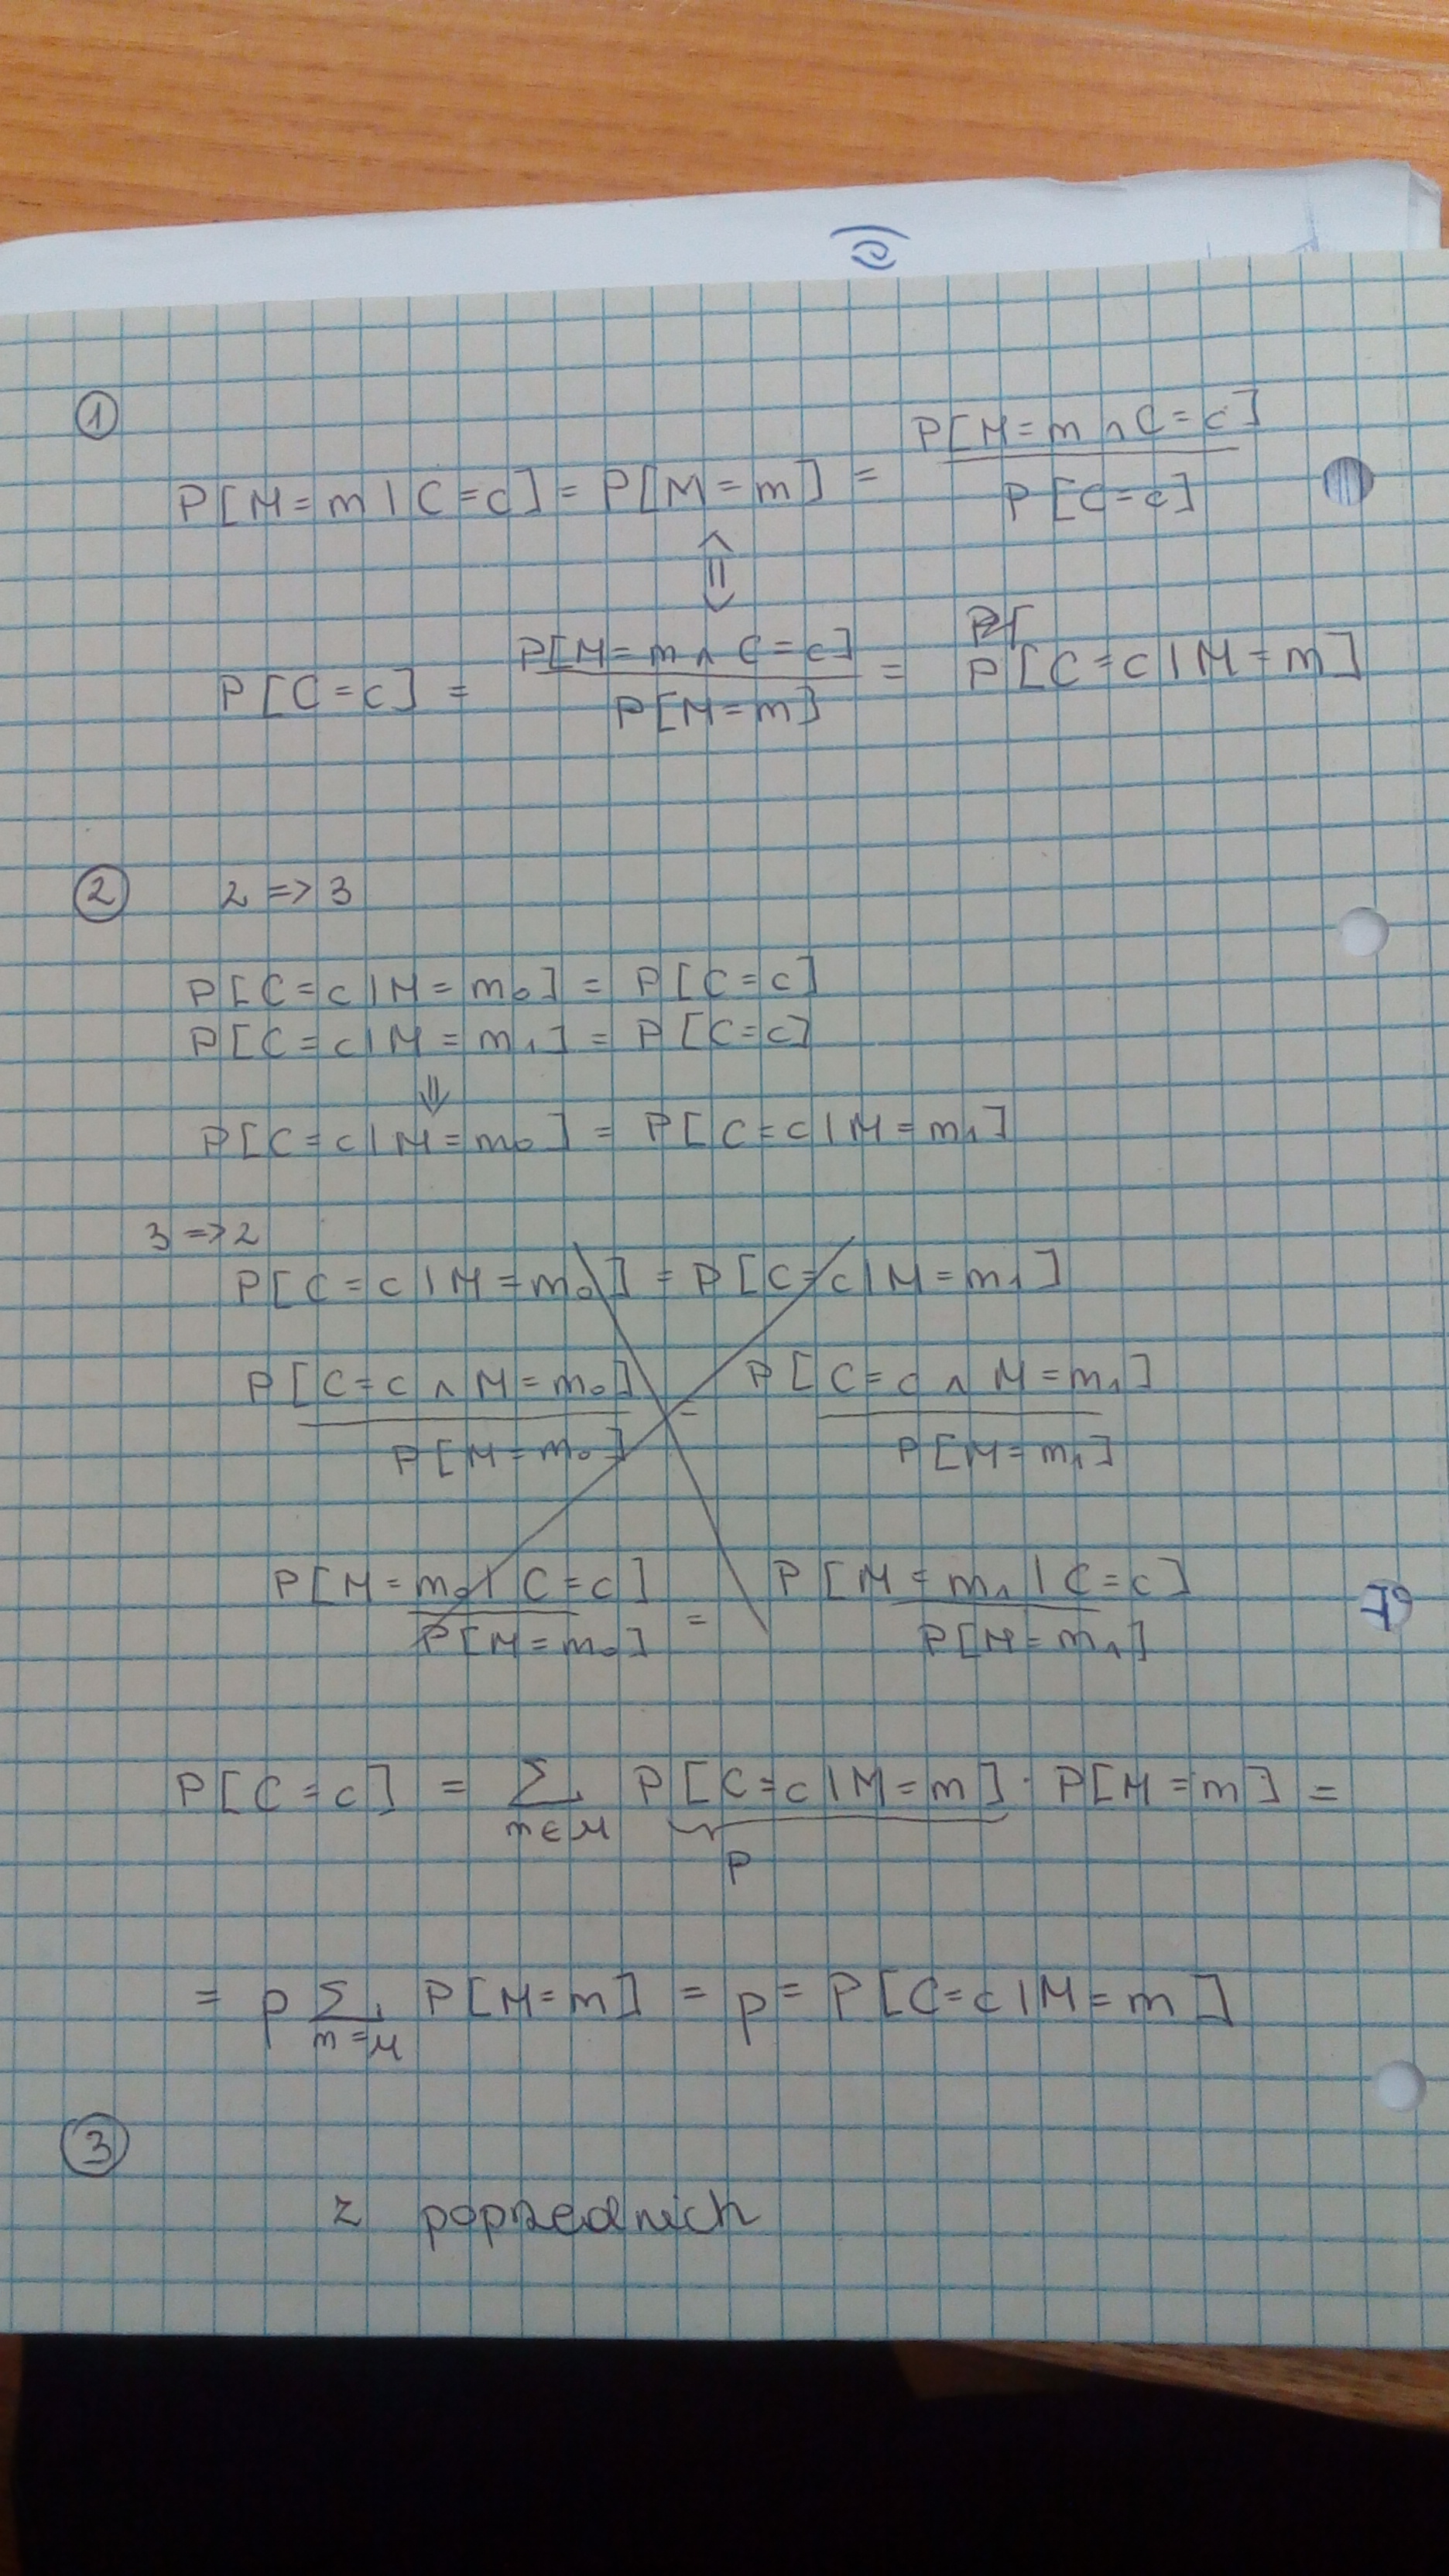 ①
P[M=m | C=c] = P[M=m] = P[M=m ∧ C=c] / P[C=c]
⇕
P[C=c] = P[M=m ∧ C=c] / P[M=m] = P[C=c | M=m]
② 2 => 3
P[C=c | M=m₀] = P[C=c]
P[C=c | M=m₁] = P[C=c]
⇓
P[C=c | M=m₀] = P[C=c | M=m₁]
3 => 2
P[C=c | M=m₀] = P[C=c | M=m₁]
P[C=c ∧ M=m₀] / P[M=m₀] = P[C=c ∧ M=m₁] / P[M=m₁]
P[M=m₀ | C=c] / P[M=m₀] = P[M=m₁ | C=c] / P[M=m₁]
P[C=c] = Σ m∈M P[C=c | M=m] · P[M=m] =
p
= p Σ m=M P[M=m] = p = P[C=c | M=m]
③
z poprzednich